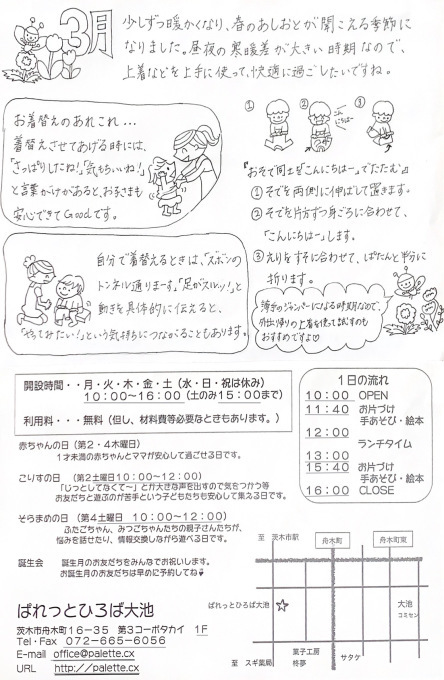 3月
少しずつ暖かくなり、春のあしおとが聞こえる季節に
なりました。昼夜の寒暖差が大きい時期なので、
上着などを上手に使って、快適に過ごしたいですね。
お着替えのあれこれ...
着替えさせてあげる時には、
「さっぱりしたね!」「気もちいいね!」
と言葉がけがあると、お子さまも
安心できてGoodです。
自分で着替えるときは、「ズボンの
トンネル通りまーす。」「足がスルッ!」と
動きを具体的に伝えると、
「やってみたい!」という気持ちにつながることもあります。
① ② ③
こんにちはー
『おそで同士を「こんにちはー」でたたむ』
①そでを両側に伸ばして置きます。
②そでを片方ずつ身ごろに合わせて、
「こんにちはー」します。
③えりをすそに合わせて、ぱたんと半分に
折ります。
薄手のジャンパーになる時期なので、
外出り帰りの上着を使って試すのも
おすすめですよ♡
開設時間・・月・火・木・金・土(水・日・祝は休み)
10:00~16:00(土のみ15:00まで)
利用料・・・無料(但し、材料費等必要なときもあります。)
赤ちゃんの日(第2・4木曜日)
1才未満の赤ちゃんとママが安心して過ごせる日です。
こりすの日(第2土曜日10:00~12:00)
「じっとしてなくて~」とか大きな声を出すので気をつかう等
お友だちと遊ぶのが苦手という子どもたちも安心して集える日です。
そらまめの日(第4土曜日 10:00~12:00)
ふたごちゃん、みつごちゃんたちの親子さんたちが、
悩みを話せたり、情報交換しながら遊べる日です。
誕生会 誕生月のお友だちをみんなでお祝いします。
お誕生月のお友だちは早めに予約してね
1日の流れ
10:00 OPEN
11:40 お片づけ
手あそび・絵本
12:00
ランチタイム
13:00
15:40 お片づけ
手あそび・絵本
16:00 CLOSE
ぱれっとひろば大池
茨木市舟木町16-35 第3コーポタカイ 1F
Tel・Fax 072-665-6056
E-mail office@palette.cx
URL http://palette.cx
至 茨木市駅
舟木町
舟木町東
ぱれっとひろば大池
☆
大池
コミセン
至 スギ薬局
菓子工房
柊夢
サタケ